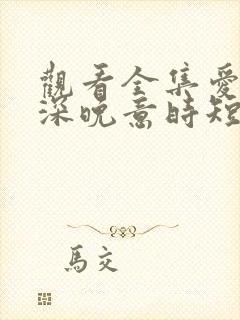 觀看全集愛
深晚意時短
馬交